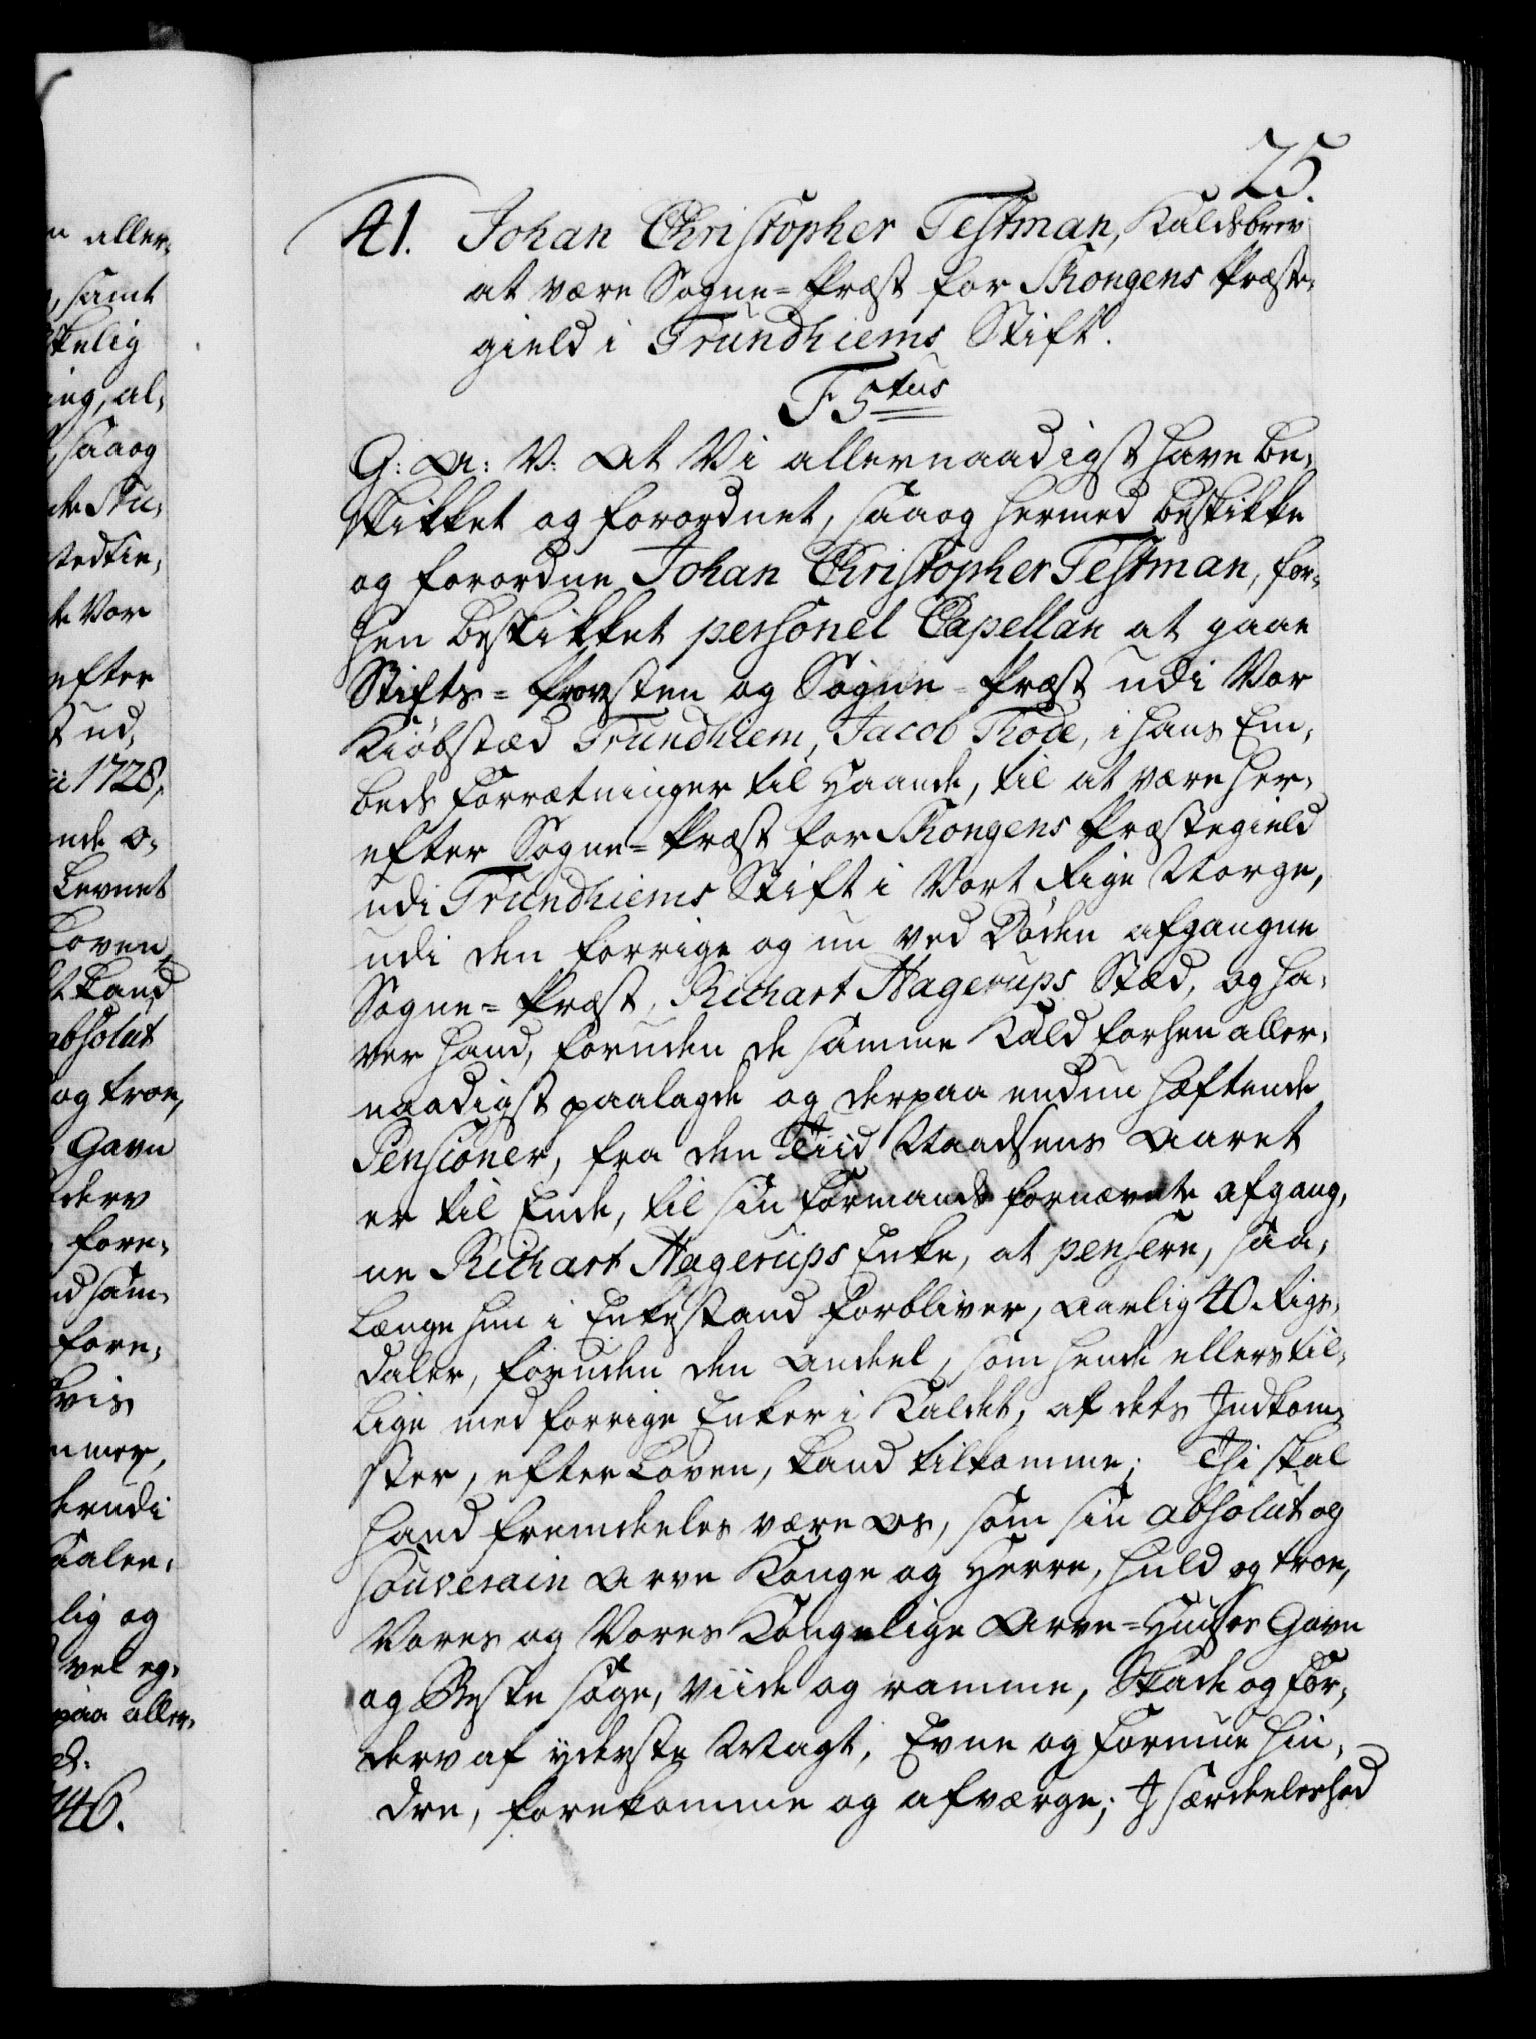 25.
41. Johan Christopher Testman, Kaldsbrev
at være Sogne-Præst for Skongens Præste-
gield i Trundhiems Stift.
F 5tus
G: A: V: At Vi allernaadigst have be-
skikket og forordnet, saa og hermed beskikke
og forordne Johan Christopher Testman, for-
hen beskikket personel Capellan at gaae
Stifts-Provsten og Sogne-Præst udi Vor
Kiøbstæd Trundhiem, Jacob Rode, i hans Em-
beds Forrætninger til Haande, til at være her-
efter Sogne-Præst for Skongens Præstegield
udi Trundhiems Stift i Vort Rige Norge,
udi den forrige og nu ved Døden afgangne
Sogne-Præst, Richart Hagerups Stæd, og ha-
ver hand, foruden de samme Kald forhen aller-
naadigst paalagde og derpaa endnu hæftende
Pensioner, fra den Tiid Naadsens Aaret
er til Ende, til sin Formands fornævnte afgang-
ne Richart Hagerups Enke, at pensere, saa-
længe hun i Enkestand forbliver, aarlig 40 Rigs-
daler, foruden den Andeel, som hende ellers til-
lige med forrige Enker i Kaldet, af dets Indkom-
ster, efter Loven, kand tilkomme; Thi skal
hand fremdeeles være Os, som sin absolut og
souverain Arve Konge og Herre, huld og troe,
Vores og Vores Kongelige Arve-Huuses Gavn
og Beste søge, viide og ramme, Skade og For-
derv af yderste Magt, Evne og Formue hin-
dre, forekomme og afværge; I særdeeleshed
n aller-
, samt
skelig
ing, al-
saa og
Vor
efter
ud,
1728,
nde o-
Levnet
Loven
kand
absolut
og troe,
Gavn
derv
fore-
fore-
vis
udi
lig og
vel eg-
paa aller-
146.